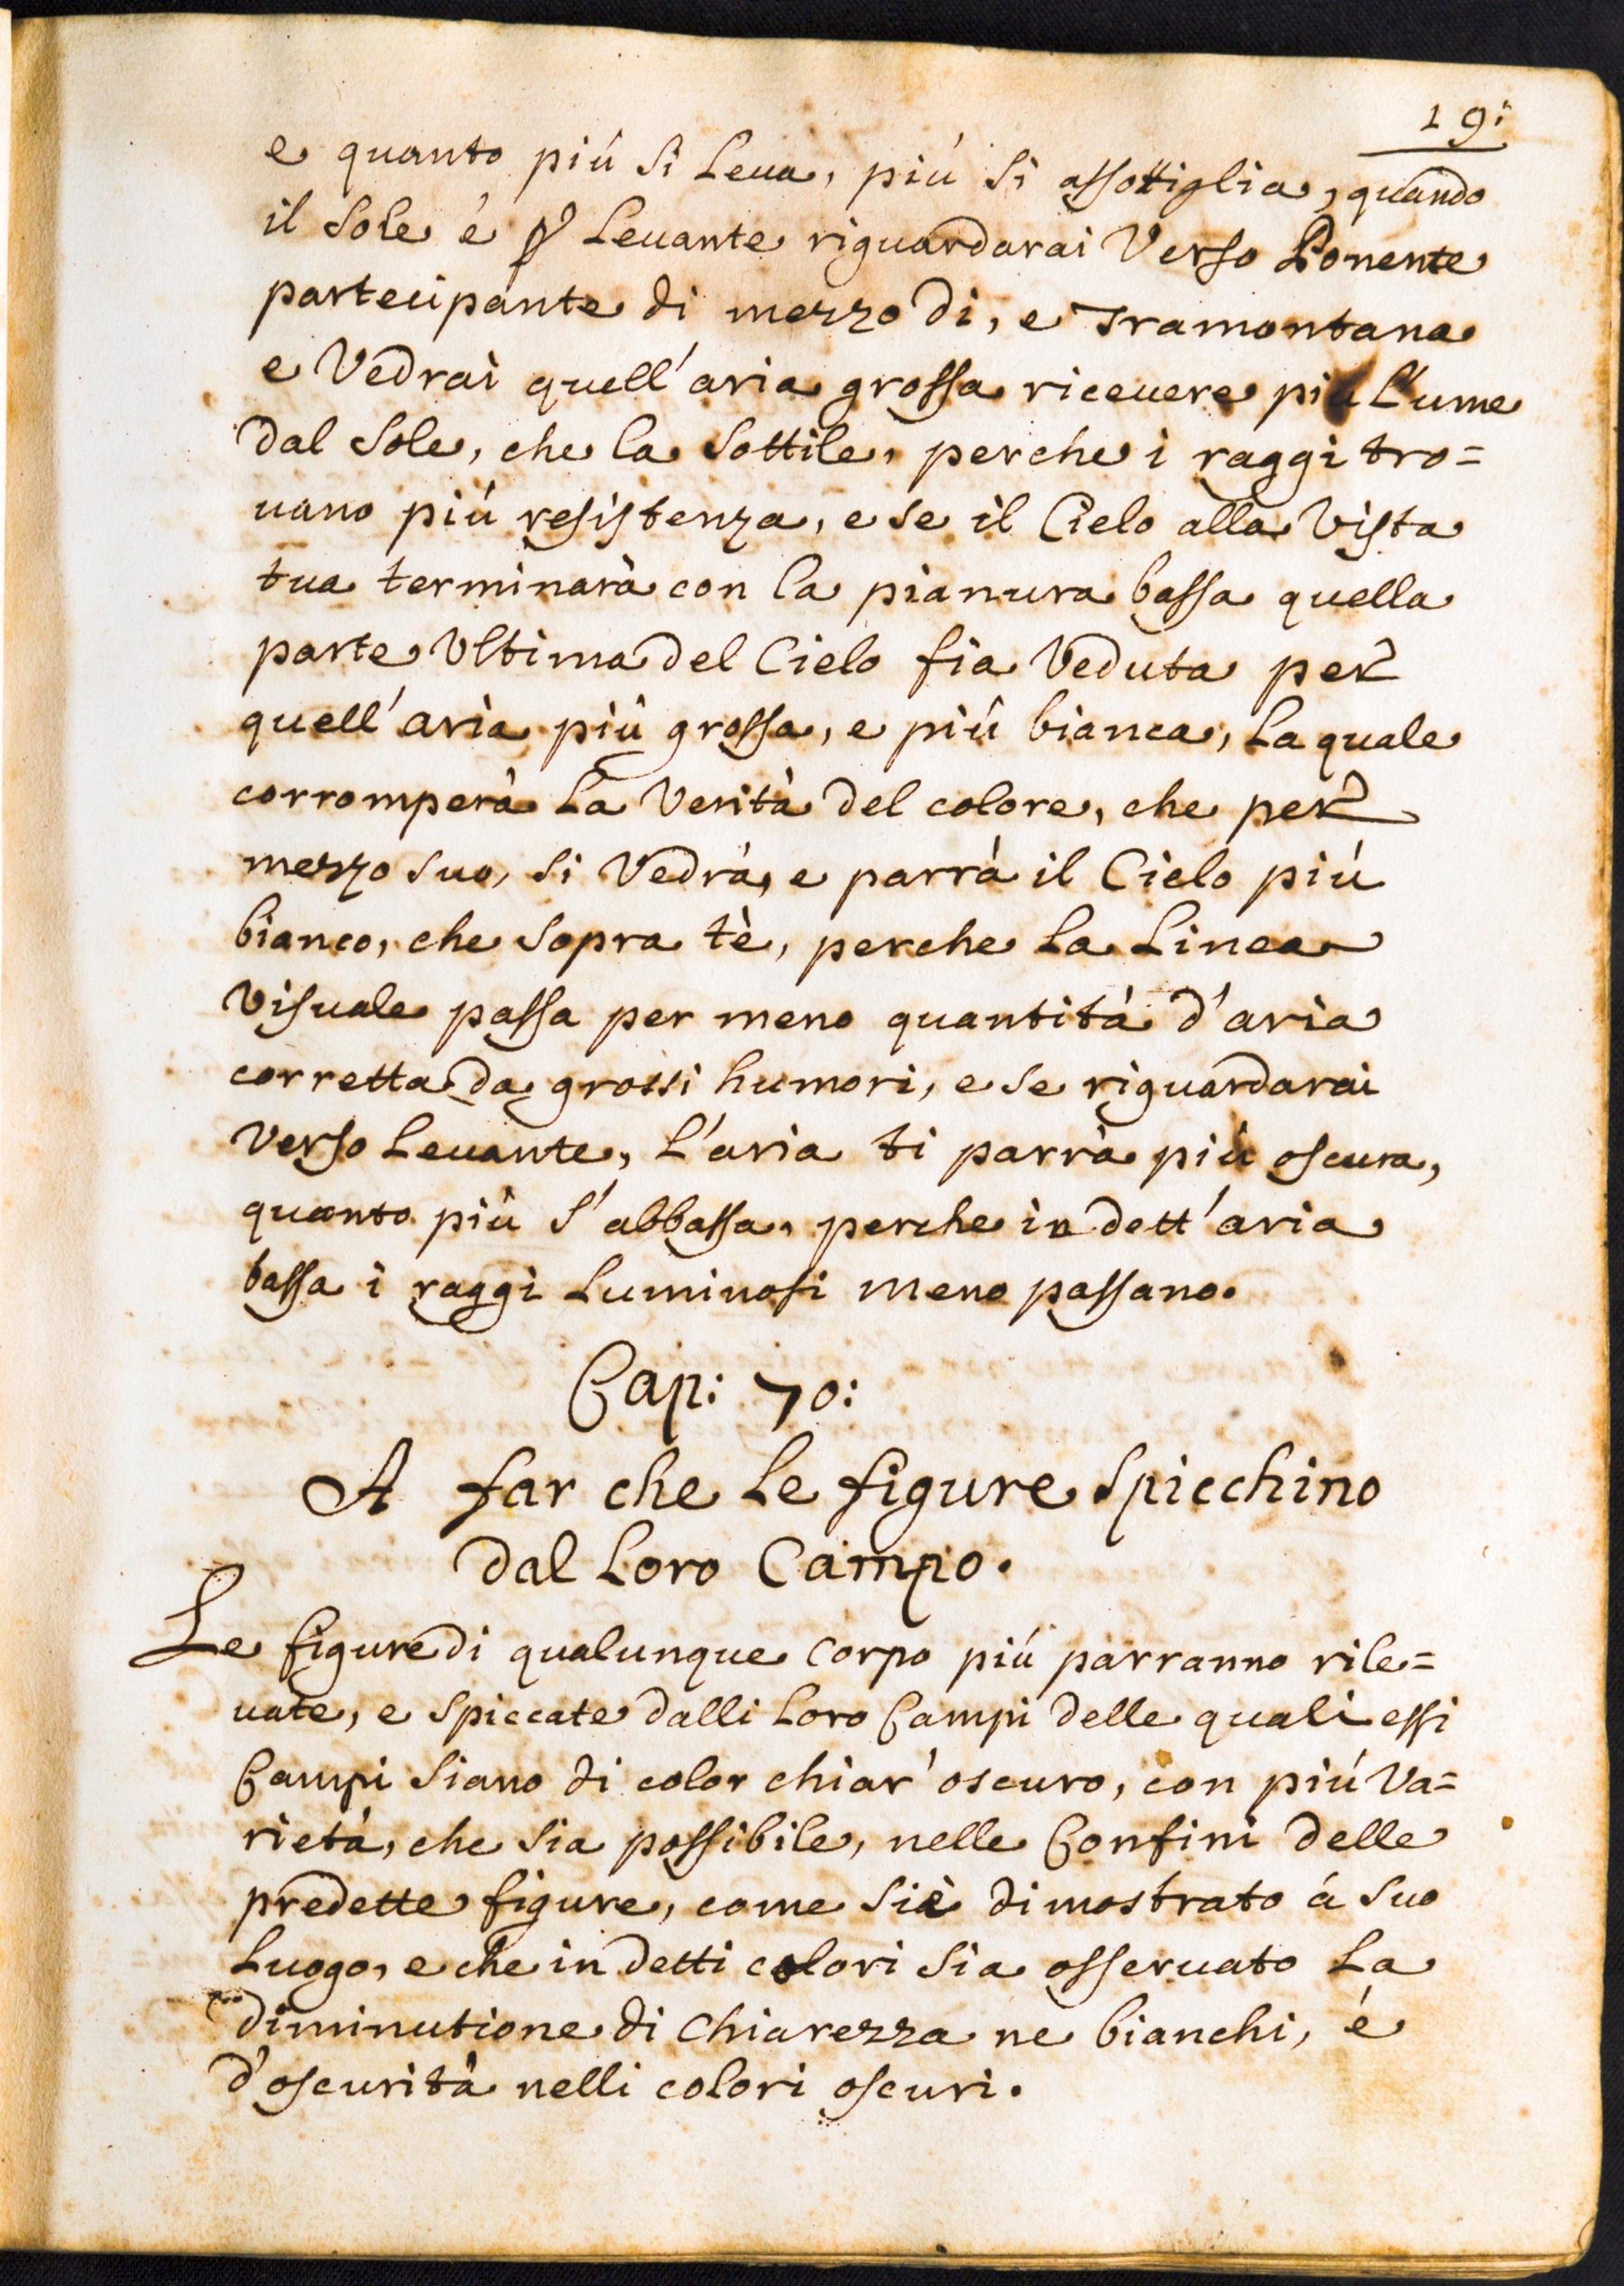 19:
e quanto più si leua, più si assottiglia, quando
il sole è ꝑ leuante riguardarai verso Ponente
partecipante di mezzo dì, e Tramontana
e Vedrai quell'aria grossa riceuere più l'ume
dal Sole, che la sottile, perche i raggi tro=
uano più resistenza, e se il Cielo alla vista
tua terminarà con la pianura bassa quella
parte Vltima del Cielo fia Veduta per
quell'aria più grossa, e più bianca, la quale
corromperà la verità del colore, che per
mezzo suo, si Vedrà, e parrà il Cielo più
bianco, che sopra tè, perche la linea
Visuale passa per meno quantità d'aria
corretta da grossi humori, e se riguardarai
verso leuante, l'aria ti parrà più oscura,
quanto più s'abbassa, perche in dett'aria
bassa i raggi luminosi meno passano.
Cap: 70:
A far che le figure spicchino
dal loro Campo.
Le figure di qualunque corpo più parranno rile=
uate, e spiccate dalli loro Campi delle quali essi
Campi siano di color chiar'oscuro, con più Va=
rietà, che sia possibile, nelle Confini delle
predette figure, come si è dimostrato à suo
luogo, e che in detti colori sia osseruato la
diminutione di chiarezza ne bianchi, é
d'oscurità nelli colori oscuri.